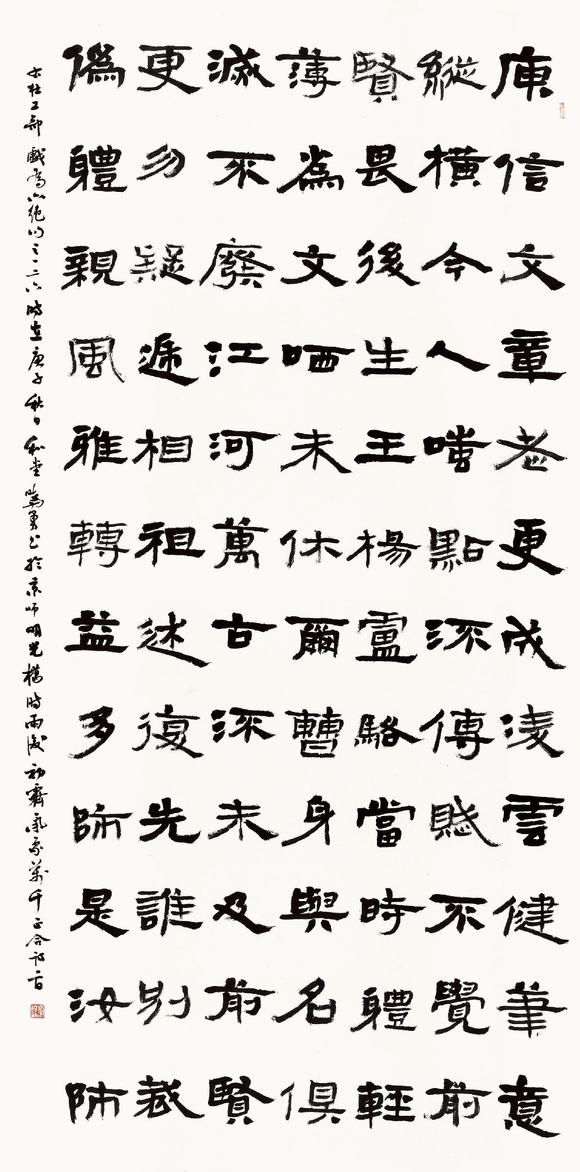 庾信文章老更成淩雲健筆意
縱橫今人嗤點流傳賦不覺前
賢畏後生王楊盧駱當時體輕
薄為文哂未休爾曹身與名俱
滅不廢江河萬古流未及前賢
更勿疑遞相祖述復先誰別裁
偽體親風雅轉益多師是汝師
杜工部戲為六絕句之一二六時在庚子秋日於京師明光橋時雨後初霽氣象萬千正合